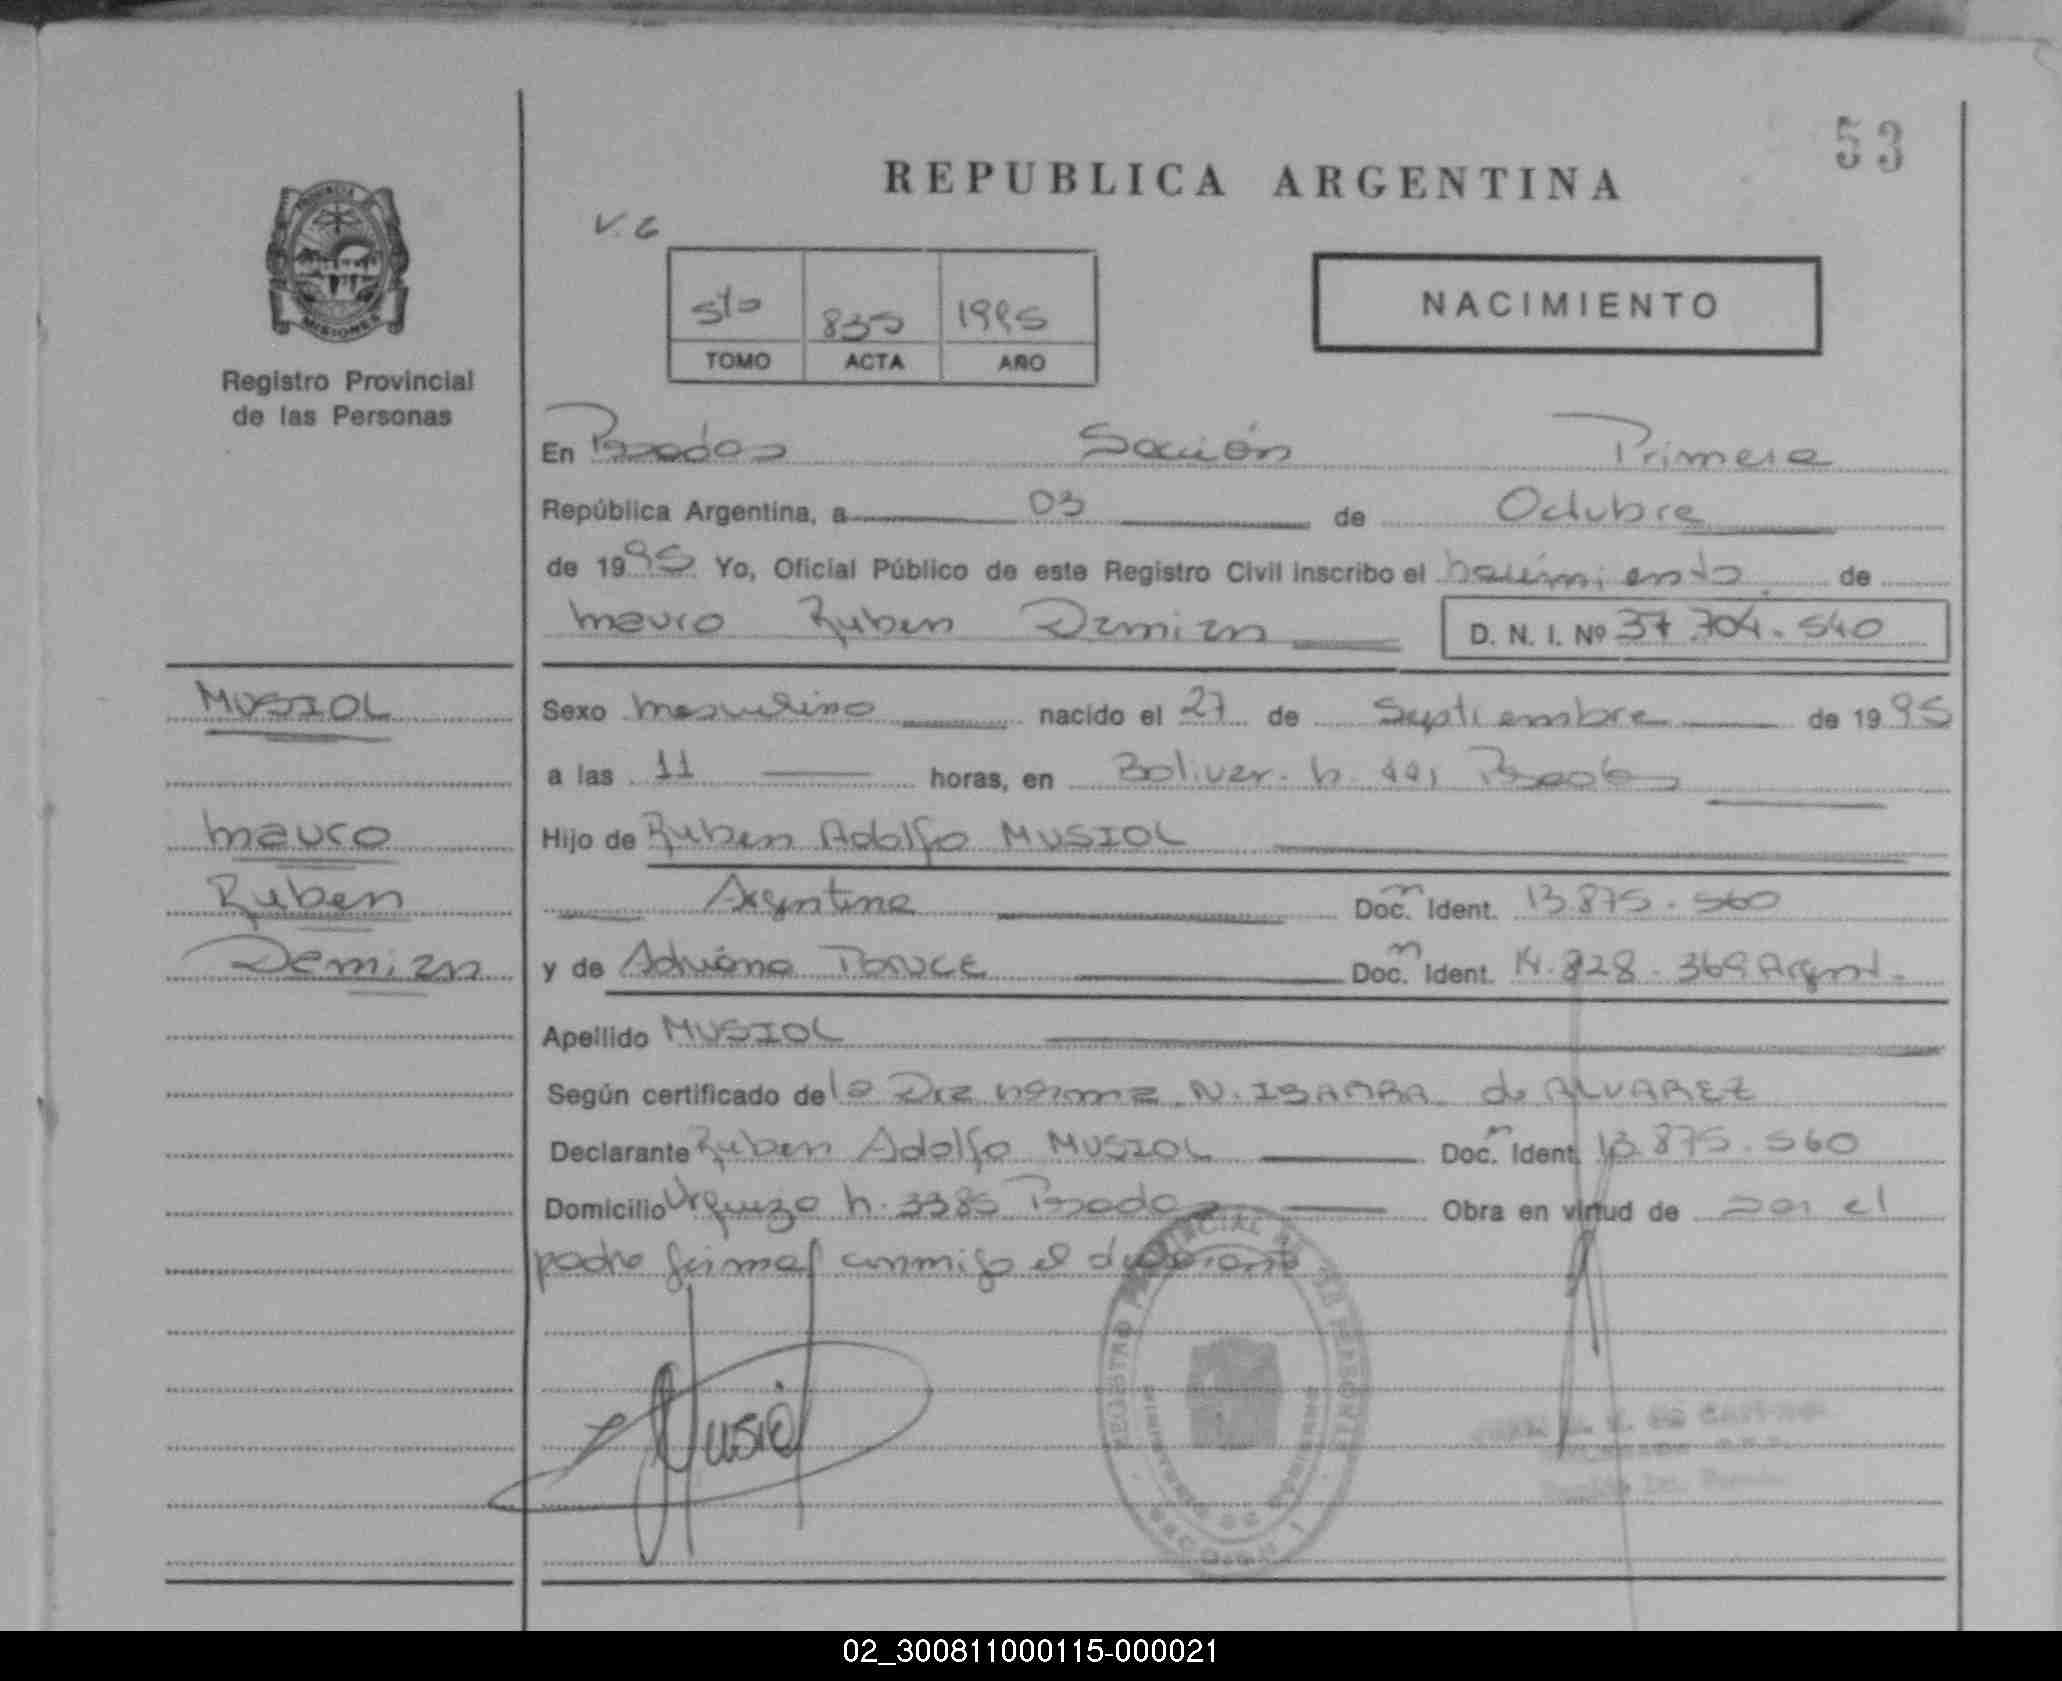 53
REPUBLICA ARGENTINA
V. 6
5to 835 1995
TOMO ACTA AÑO
NACIMIENTO
MISIONES
Registro Provincial
de las Personas
En Posadas Sección Primera
República Argentina, a 03 de Octubre
de 1995 Yo, Oficial Público de este Registro Civil inscribo el nacimiento de
Mauro Ruben Demian D. N. I. Nº 37.704.540
MUSIOL
Mauro
Ruben
Demian
Sexo masculino nacido el 27 de Septiembre de 1995
a las 11 horas, en Bolivar. n. Posadas
Hijo de Ruben Adolfo MUSIOL
Argentina Doc. Ident. 13.875.560
y de Adriana PONCE Doc. Ident. 14.828.369 Argent.
Apellido MUSIOL
Según certificado de la Dra Norma N. de ALVAREZ
Declarante Ruben Adolfo MUSIOL Doc. Ident. 13.875.560
Domicilio Urquiza n. 3385 Posadas Obra en virtud de ser el
padre firma conmigo el declarante
Musiol
REGISTRO PROVINCIAL DE LAS PERSONAS
MINISTERIO DE GOBIERNO
SECCION 1
02_300811000115-000021